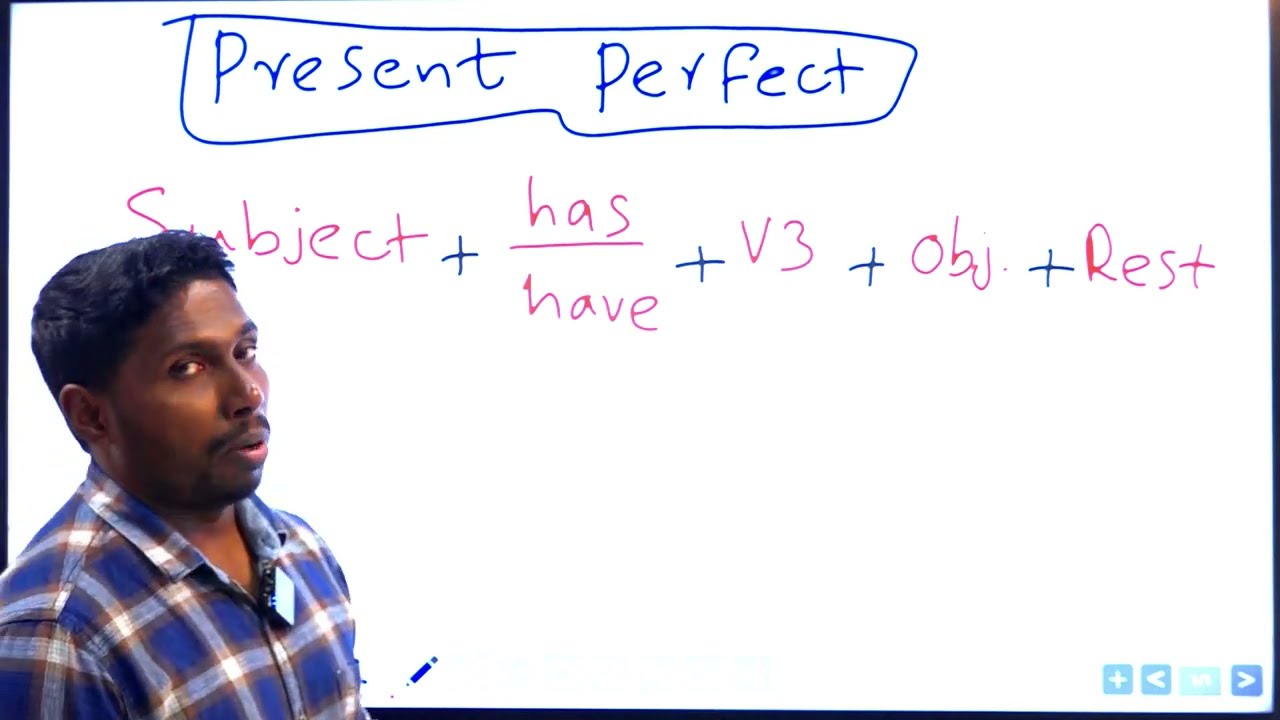 Present Perfect
Subject + has/have + V3 + Obj. + Rest